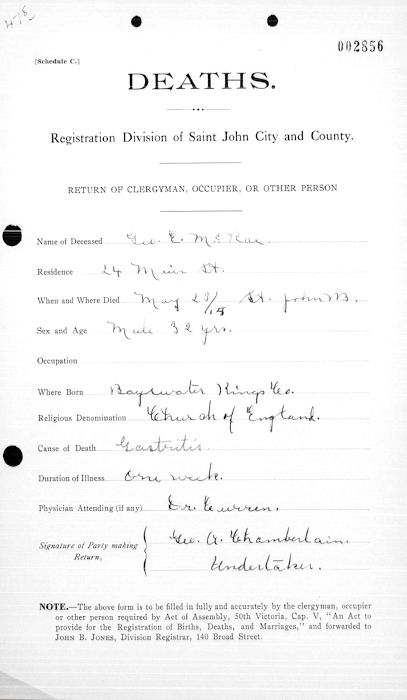 478
002856
[Schedule C.]
DEATHS.
Registration Division of Saint John City and County.
RETURN OF CLERGYMAN, OCCUPIER, OR OTHER PERSON
Name of Deceased Geo. E. McRae.
Residence 24 Main St.
When and Where Died May 23/15 St. John N.B.
Sex and Age Male 32 yrs.
Occupation
Where Born Bayswater Kings Co.
Religious Denomination Church of England.
Cause of Death Gastritis
Duration of Illness One week.
Physician Attending (if any) Dr. Curren.
Signature of Party making Return, { Geo. A. Chamberlain.
Undertaker.
NOTE.—The above form is to be filled in fully and accurately by the clergyman, occupier
or other person required by Act of Assembly, 50th Victoria, Cap. V, "An Act to
provide for the Registration of Births, Deaths, and Marriages," and forwarded to
JOHN B. JONES, Division Registrar, 140 Broad Street.